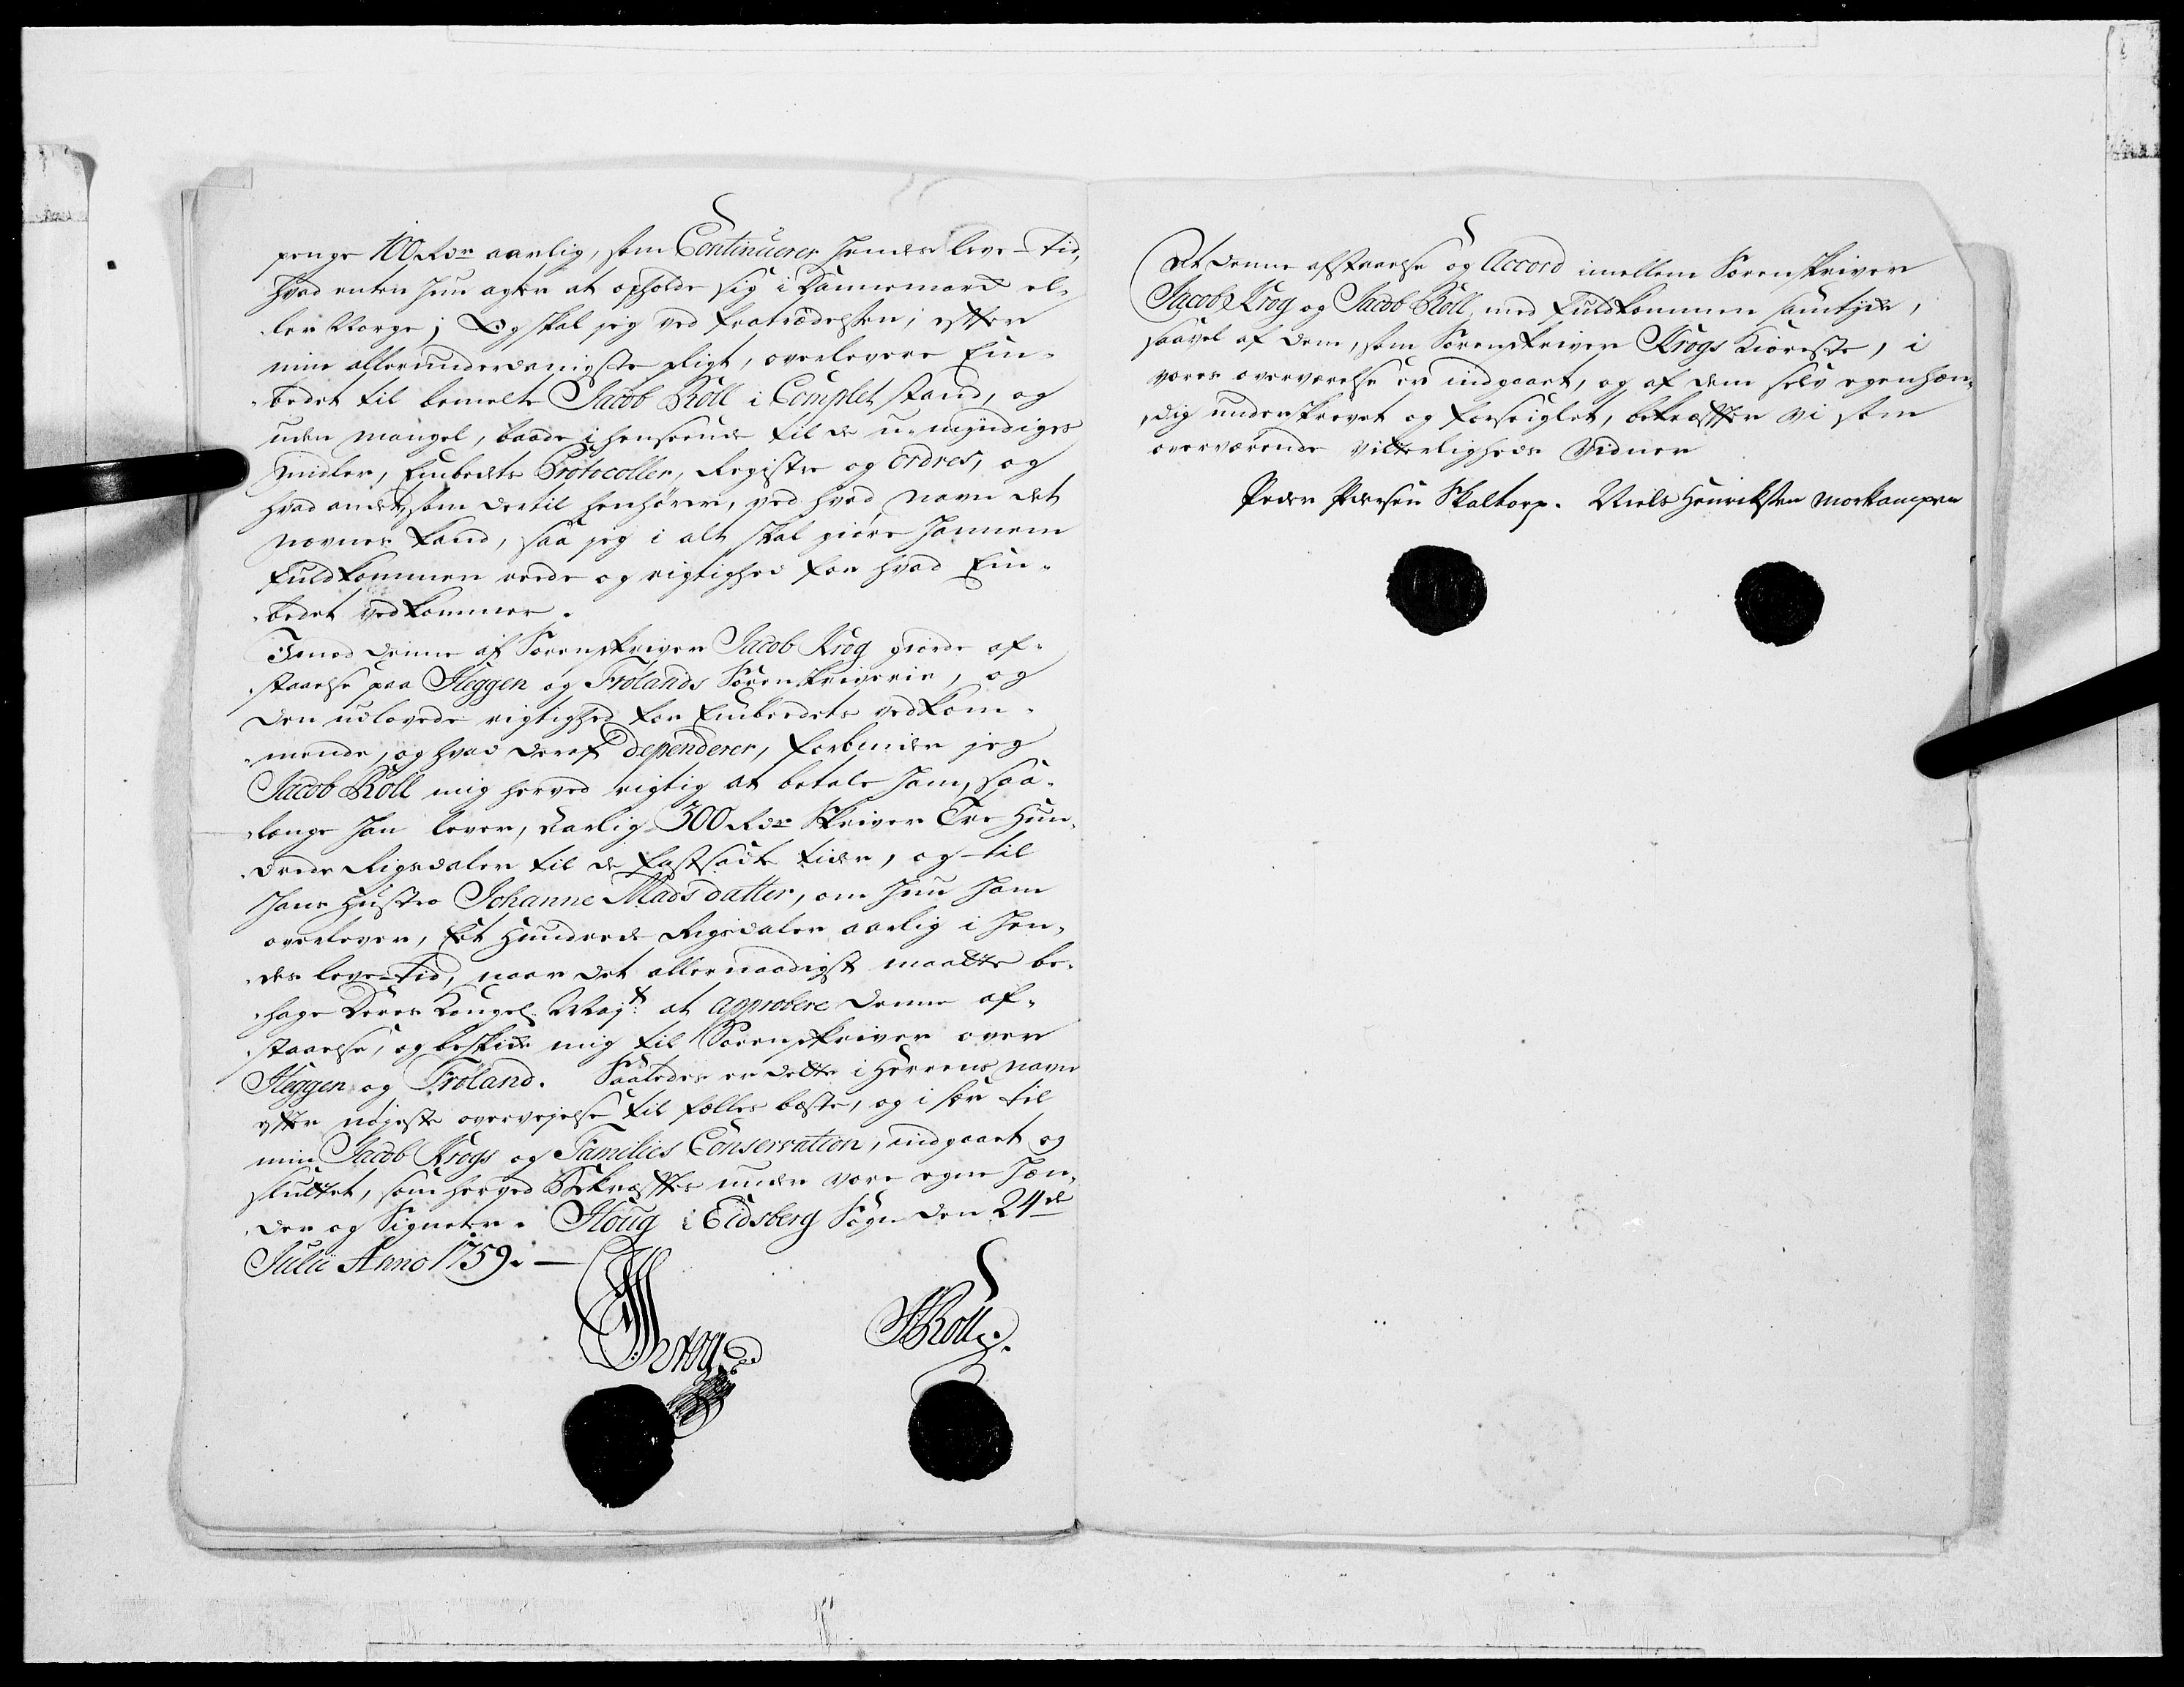 penge 100 Rdr aarlig, som Continuerer hendes leve-tid,
hvad enten hun agter at opholde sig i Dannemark el-
ler Norge; Og skal jeg ved fratrædelsen, efter
min allerunderdanigste Pligt, overlevere Em-
bedet til bemelte Jacob Röll i Complet stand, og
uden mangel, baade i henseende til de u-myndiges
Midler, Embedets Protocoller, Registre og Ordres, og
hvad andet, som dertil henhörer, ved hvad navn det
nævnes kand, saa jeg i alt skal giöre hannem
fuldkommen rede og rigtighed for hvad Em-
bedet vedkommer.
Imod denne af Sorenskriver Jacob Krog giorde af-
staaelse paa Heggen og Frölands Sorenskriverie, og
den udlovede rigtighed for Embedets vedkom-
mende, og hvad deraf dependerer, forbinder jeg
Jacob Röll mig herved rigtig at betale ham, saa-
længe han lever, Aarlig 300 Rdr Skriver Tre Hun-
drede Rigsdaler til de fastsadte tider, og til
hans Hustro Johanne Madsdatter, om hun ham
overlever, Et Hundrede Rigsdaler aarlig i hen-
des leve-tid, naar det allernaadigst maatte be-
hage Deres Kongel. Mayt: at approbere denne af-
staaelse, og beskikke mig til Sorenskriver over
Heggen og Fröland. Saaledes er dette i Herrens navn
efter nöyeste overvejelse til fælles bæste, og i sær til
min Jacob Krogs og Families Conservation, indgaaet og
sluttet, som herved Bekræftes under vore egne hæn-
der og Signeter. Houg i Eidsberg Sogn den 24de
Julii Anno 1759. —
JKrog
JRöll.
At denne afstaaelse og Accord imellem Sorenskriver
Jacob Krog og Jacob Röll, med fuldkommen samtykke,
saavel af dem, som Sorenskriver Krogs Kiæreste, i
vores overværelse er indgaaet, og af dem selv egenhæn-
dig underskrevet og forseiglet, bekræfter vi som
overværende vitterligheds Vidner
Peder Pedersen Skaltorp. Niels Henriksen Morkampen